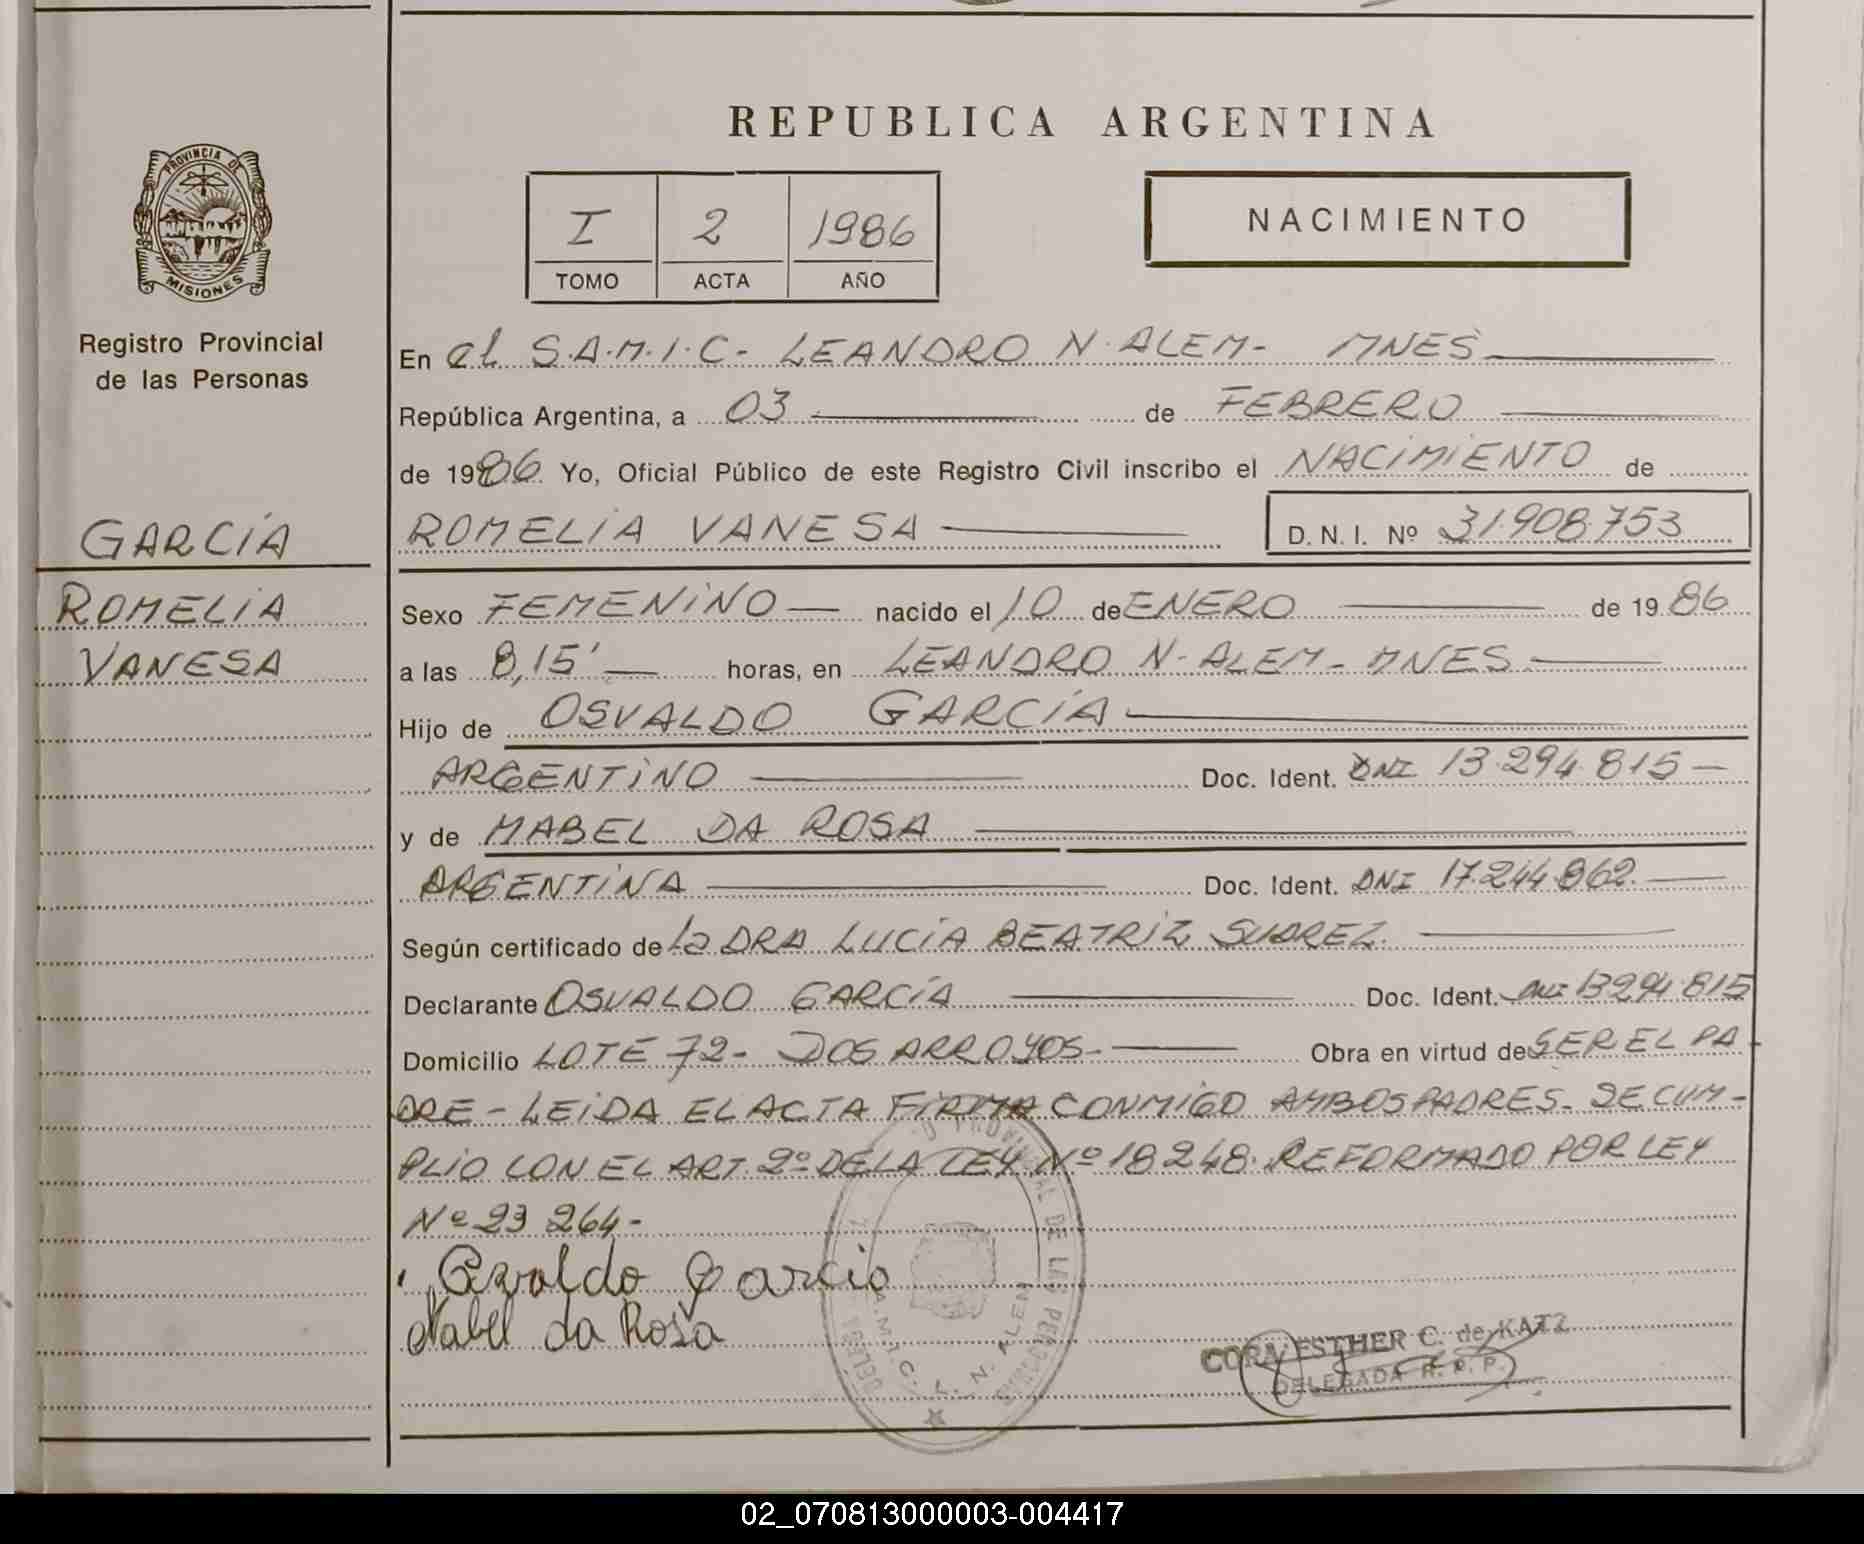 REPUBLICA ARGENTINA
PROVINCIA DE
MISIONES
Registro Provincial
de las Personas
GARCÍA
ROMELIA
VANESA
I 2 1986
TOMO ACTA AÑO
NACIMIENTO
En el S.A.M.I.C- LEANDRO N. ALEM- MNES
República Argentina, a 03 de FEBRERO
de 1986. Yo, Oficial Público de este Registro Civil inscribo el NACIMIENTO de
ROMELIA VANESA D. N. I. Nº 31.908.753
Sexo FEMENINO nacido el 10 de ENERO de 1986
a las 8,15' horas, en LEANDRO N- ALEM- MNES
Hijo de OSVALDO GARCÍA
ARGENTINO Doc. Ident. DNI 13.294.815-
y de MABEL DA ROSA
ARGENTINA Doc. Ident. DNI 17.244.862.
Según certificado de la DRA LUCÍA BEATRIZ SUAREZ.
Declarante OSVALDO GARCÍA Doc. Ident. DNI 13294.815
Domicilio LOTE 72- DOS ARROYOS- Obra en virtud de SER EL PA-
DRE - LEIDA EL ACTA FIRMA CONMIGO AMBOS PADRES- SE CUM-
PLIO CON EL ART. 2º DE LA LEY Nº 18248. REFORMADO POR LEY
Nº 23 264-
Osvaldo Garcia
Mabel da Rosa
PROVINCIAL DE LAS PERSONAS
S.A.M.I.C. L. N. ALEM
CORA ESTHER C. de KATZ
DELEGADA R. P. P.
02_070813000003-004417